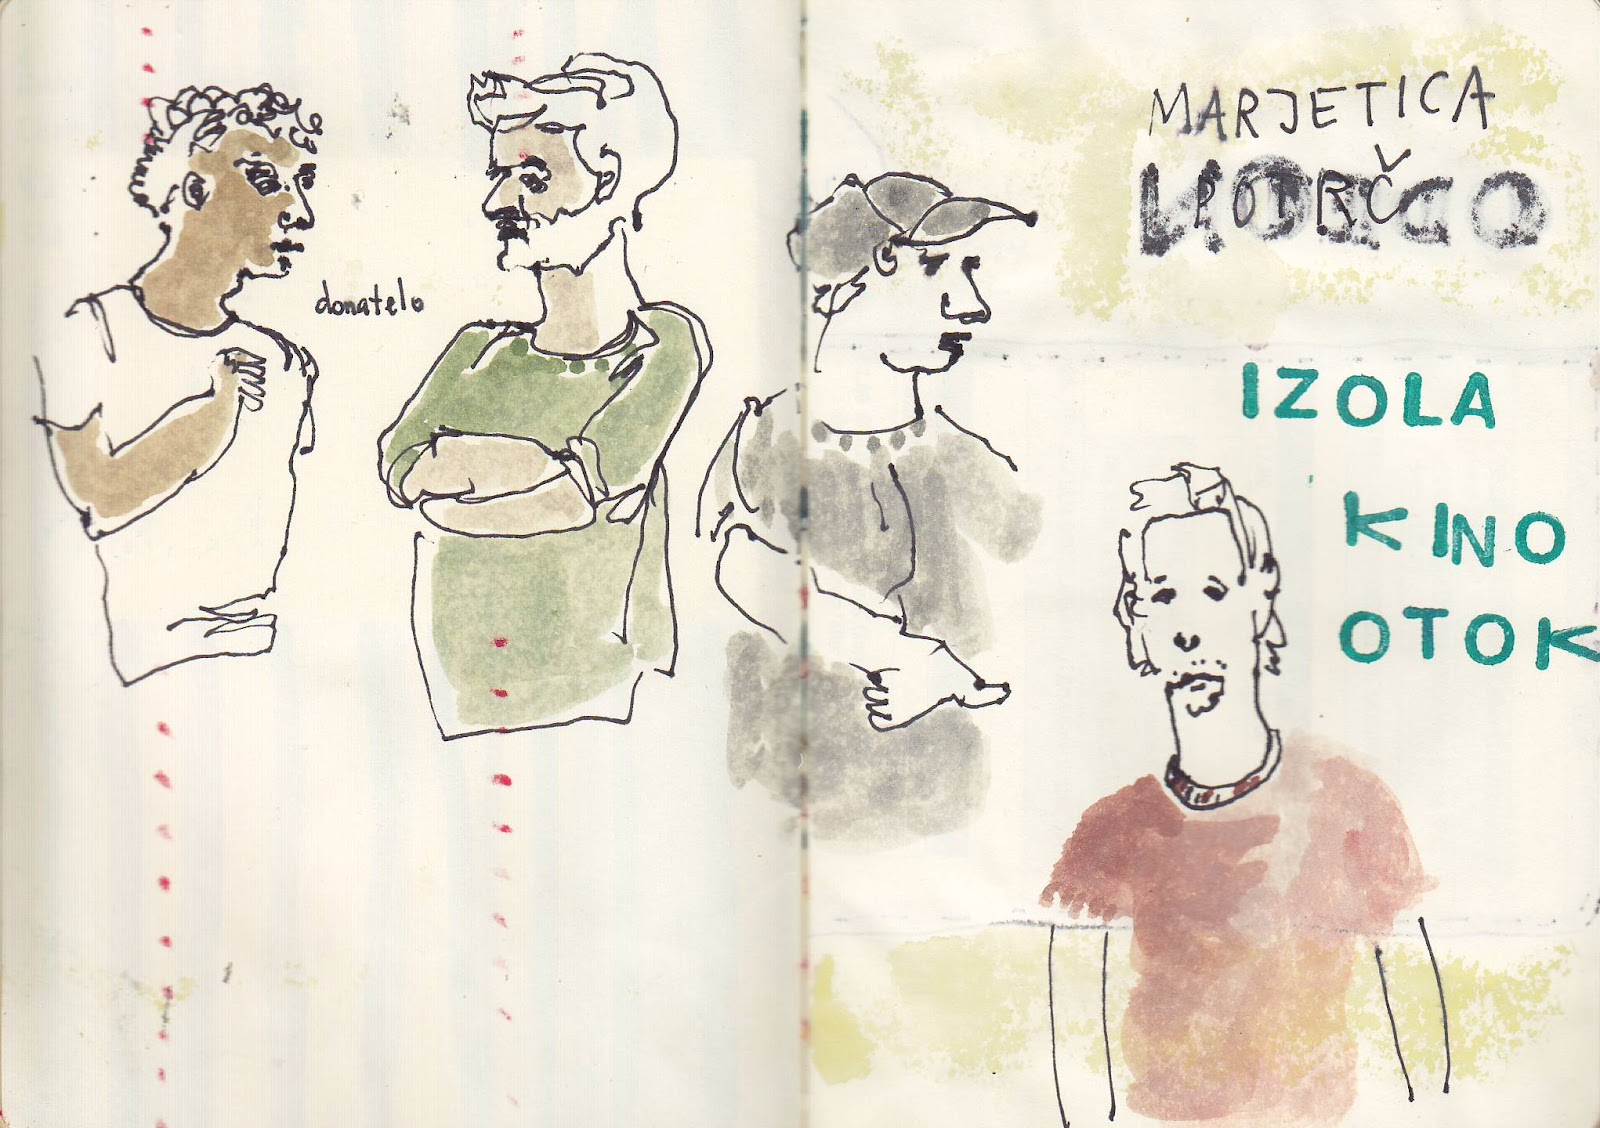 donatelo
MARJETICA
POTRČ
IZOLA
KINO
OTOK